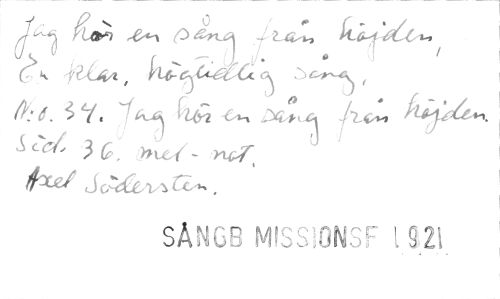 Jag hör en sång från höjden,
En klar, högtidlig sång,
N:o. 34. Jag hör en sång från höjden.
Sid. 36. mel-not.
Axel Södersten.
SÅNGB MISSIONSF 1921